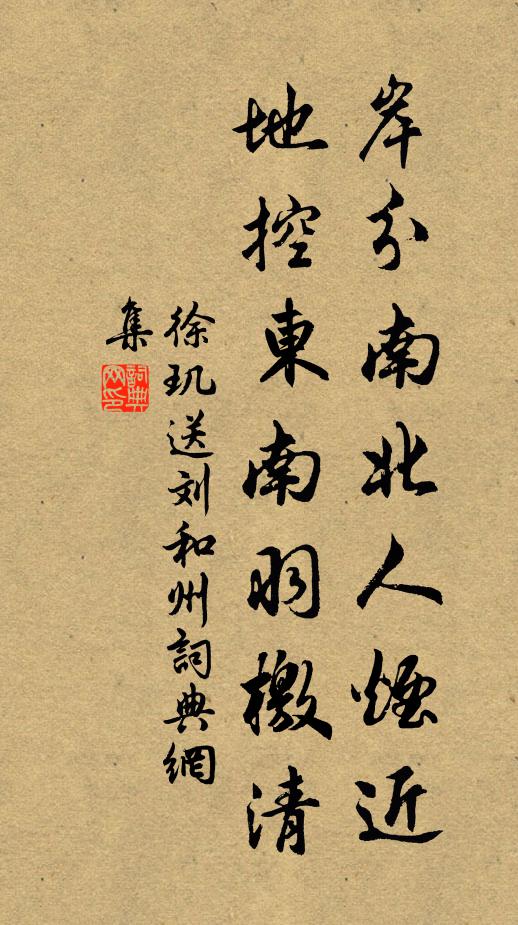 岸分南北人煙近
地控東南羽檄清
徐玑送刘和州詞典網
集
詞典網印